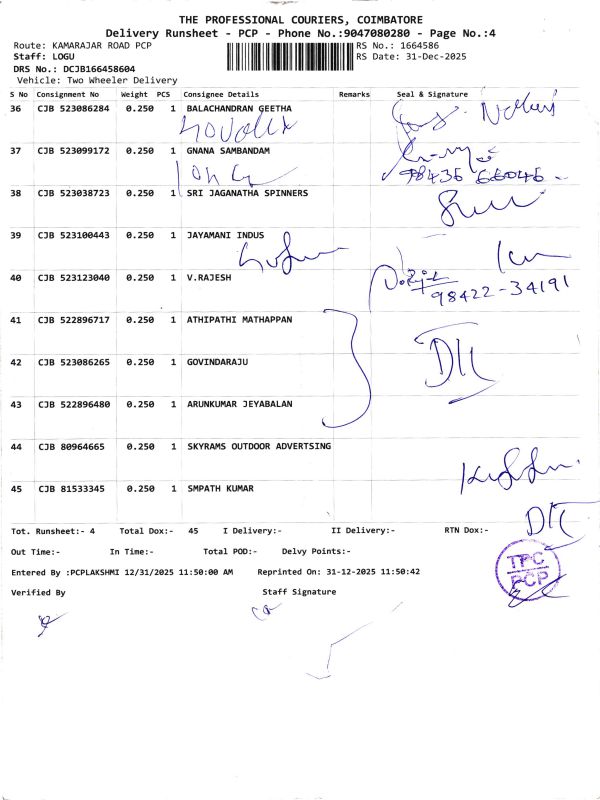 THE PROFESSIONAL COURIERS, COIMBATORE
Delivery Runsheet - PCP - Phone No.:9047080280 - Page No.:4
Route: KAMARAJAR ROAD PCP RS No.: 1664586
Staff: LOGU RS Date: 31-Dec-2025
DRS No.: DCJB166458604
Vehicle: Two Wheeler Delivery
S No Consignment No Weight PCS Consignee Details Remarks Seal & Signature
36 CJB 523086284 0.250 1 BALACHANDRAN GEETHA
37 CJB 523099172 0.250 1 GNANA SAMBANDAM
98436 66046
38 CJB 523038723 0.250 1 SRI JAGANATHA SPINNERS
39 CJB 523100443 0.250 1 JAYAMANI INDUS
40 CJB 523123040 0.250 1 V.RAJESH
98422-34191
41 CJB 522896717 0.250 1 ATHIPATHI MATHAPPAN
42 CJB 523086265 0.250 1 GOVINDARAJU
43 CJB 522896480 0.250 1 ARUNKUMAR JEYABALAN
44 CJB 80964665 0.250 1 SKYRAMS OUTDOOR ADVERTSING
45 CJB 81533345 0.250 1 SMPATH KUMAR
Tot. Runsheet:- 4 Total Dox:- 45 I Delivery:- II Delivery:- RTN Dox:-
Out Time:- In Time:- Total POD:- Delvy Points:-
Entered By :PCPLAKSHMI 12/31/2025 11:50:00 AM Reprinted On: 31-12-2025 11:50:42
Verified By Staff Signature
TPC
PCP